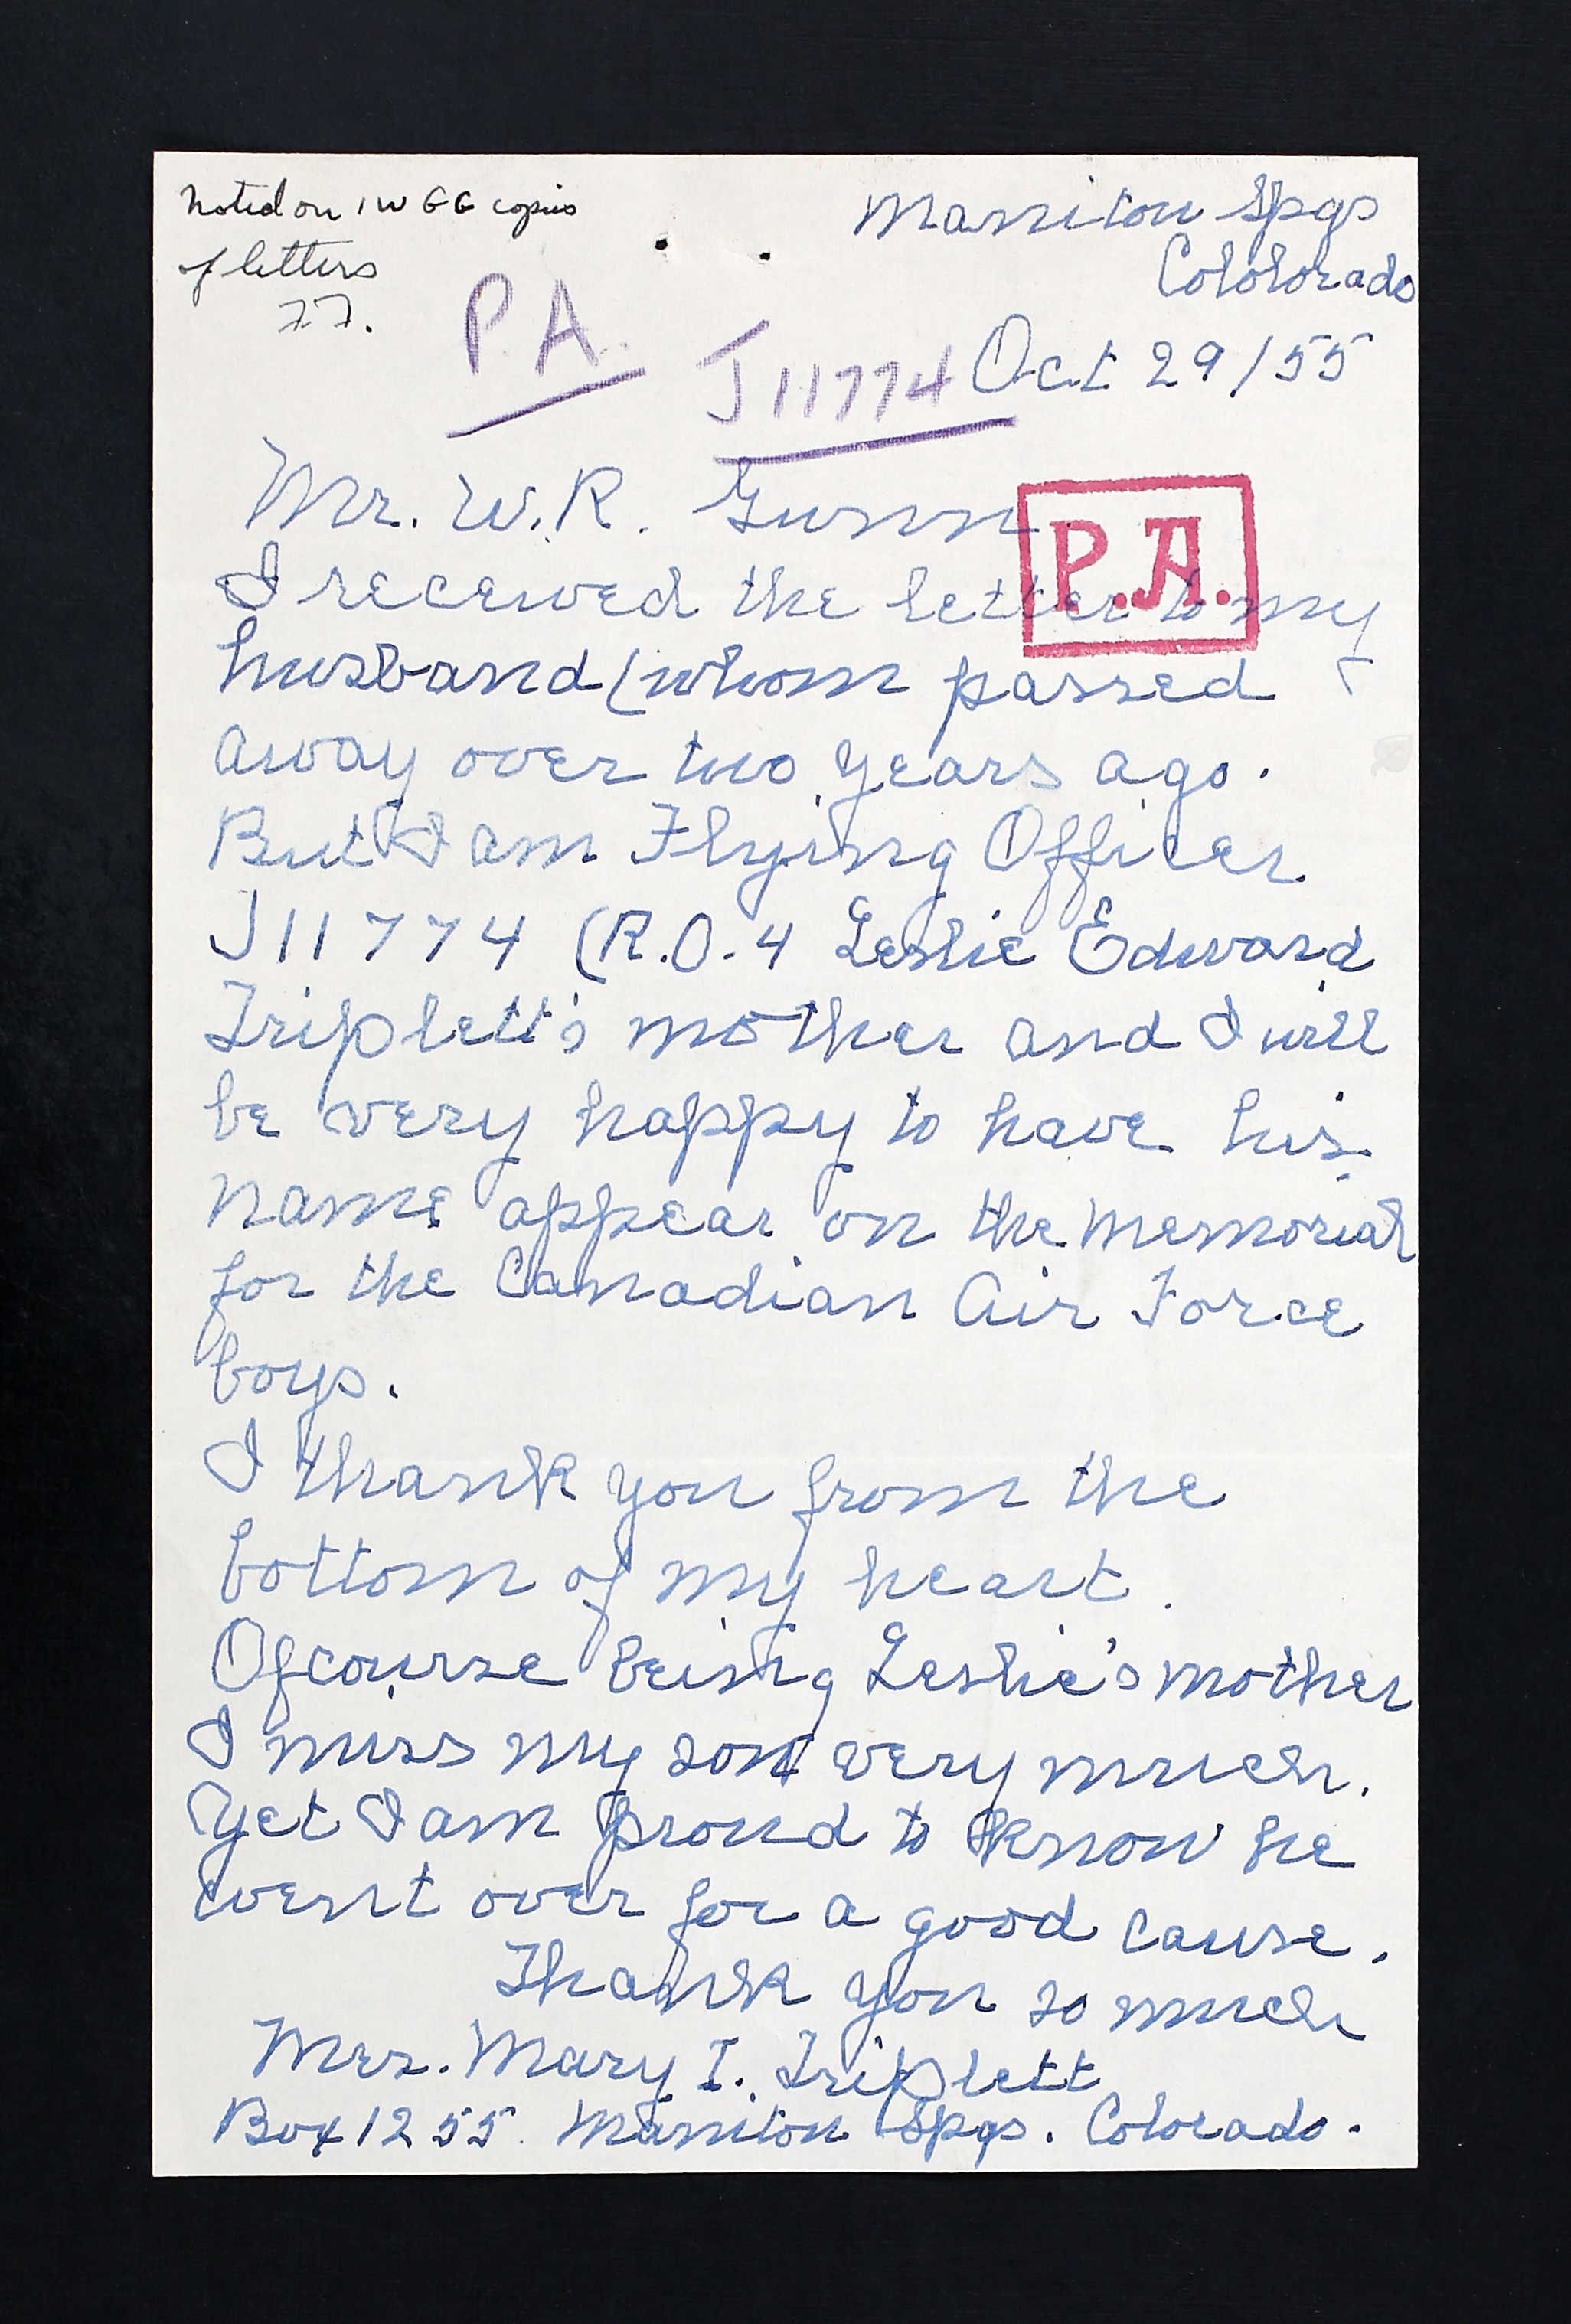 Noted on IWGG copies
of letters
77.
Manitou Spgs
Cololorado
P.A.
J11774
Oct 29/55
Mr. W.R. Gunn.
P.A.
I received the letter to my
husband (whom passed
away over two years ago.
But I am Flying Officer
J11774 (R.O.4 Leslie Edward
Triplett's mother and I will
be very happy to have his
name appear on the Memorial
for the Canadian Air Force
boys.
I thank you from the
bottom of my heart.
Ofcourse being Leslie's mother
I miss my son very much.
Yet I am proud to know he
went over for a good cause.
Thank you so much
Mrs. Mary I. Triplett
Box 1255. Manitou Spgs. Colorado.